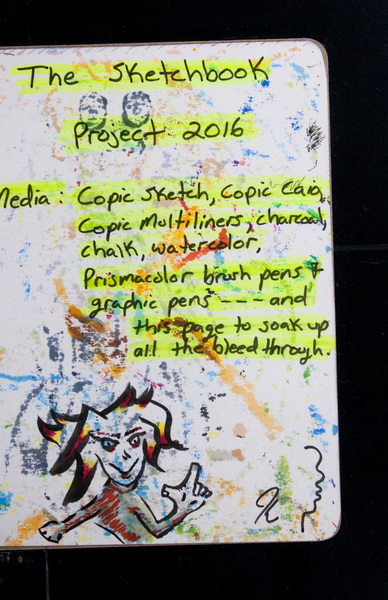 The Sketchbook
Project 2016
Media: Copic sketch, Copic Ciao,
Copic multiliners, charcoal,
chalk, watercolor,
Prismacolor brush pens +
graphic pens --- and
this page to soak up
all the bleed through.